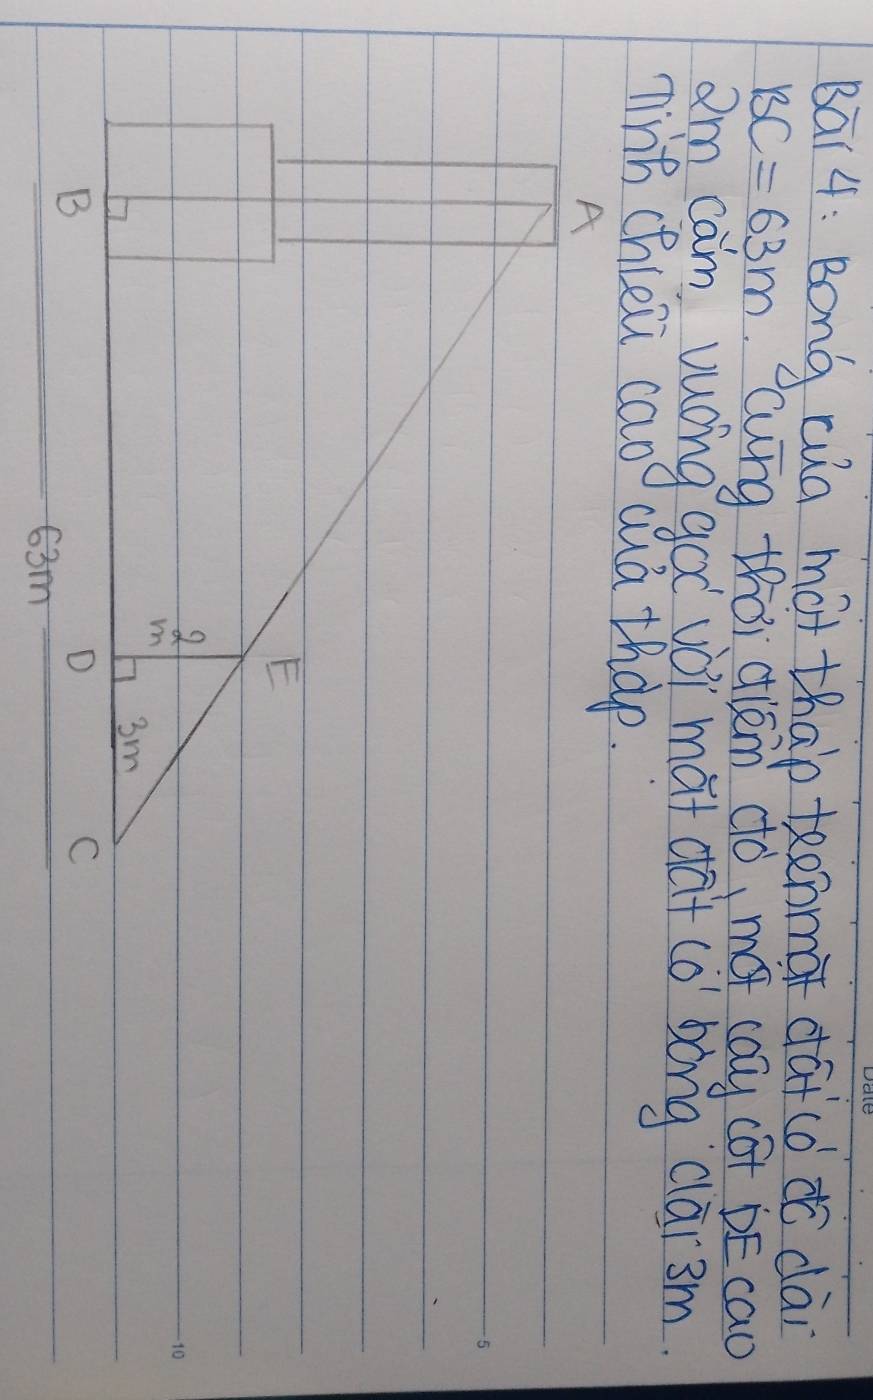 Date
Bài 4: Bóng của một tháp trên mặt đất có độ dài
BC = 63m. Cùng thời điểm đó, một cây cột DE cao
2m cắm vuông góc với mặt đất có bóng dài 3m.
Tính chiều cao của tháp.
A
5
E
2
m
3m
10
B D C
63m